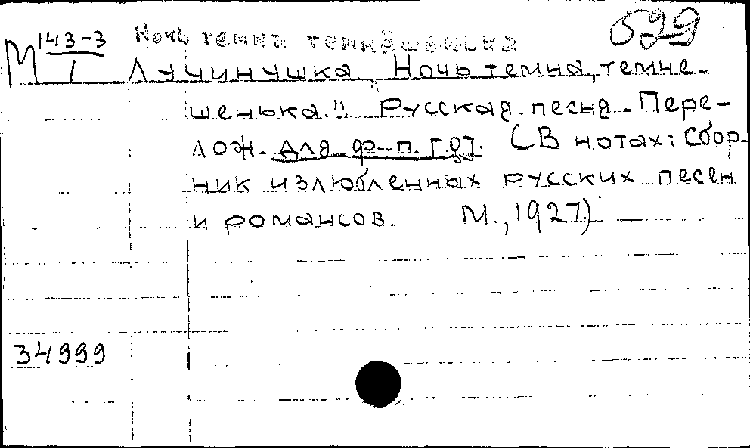 М 143-3/1 Ночь темна темнёшенька 599
Лучинушка. "Ночь темна, темне-
шенька." Русская песня. Пере-
лож. для ф-п. [г.д]. (В нотах: Сбор-
ник излюбленных русских песен
и романсов. М., 1927)
34999